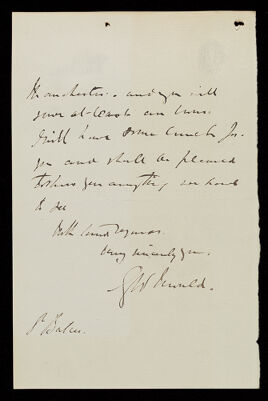 Manchester - and you will
save at least an hour.
I will have some lunch for
you and shall be pleased
to show you anything we have
to see
With kind regards
Very sincerely yrs.